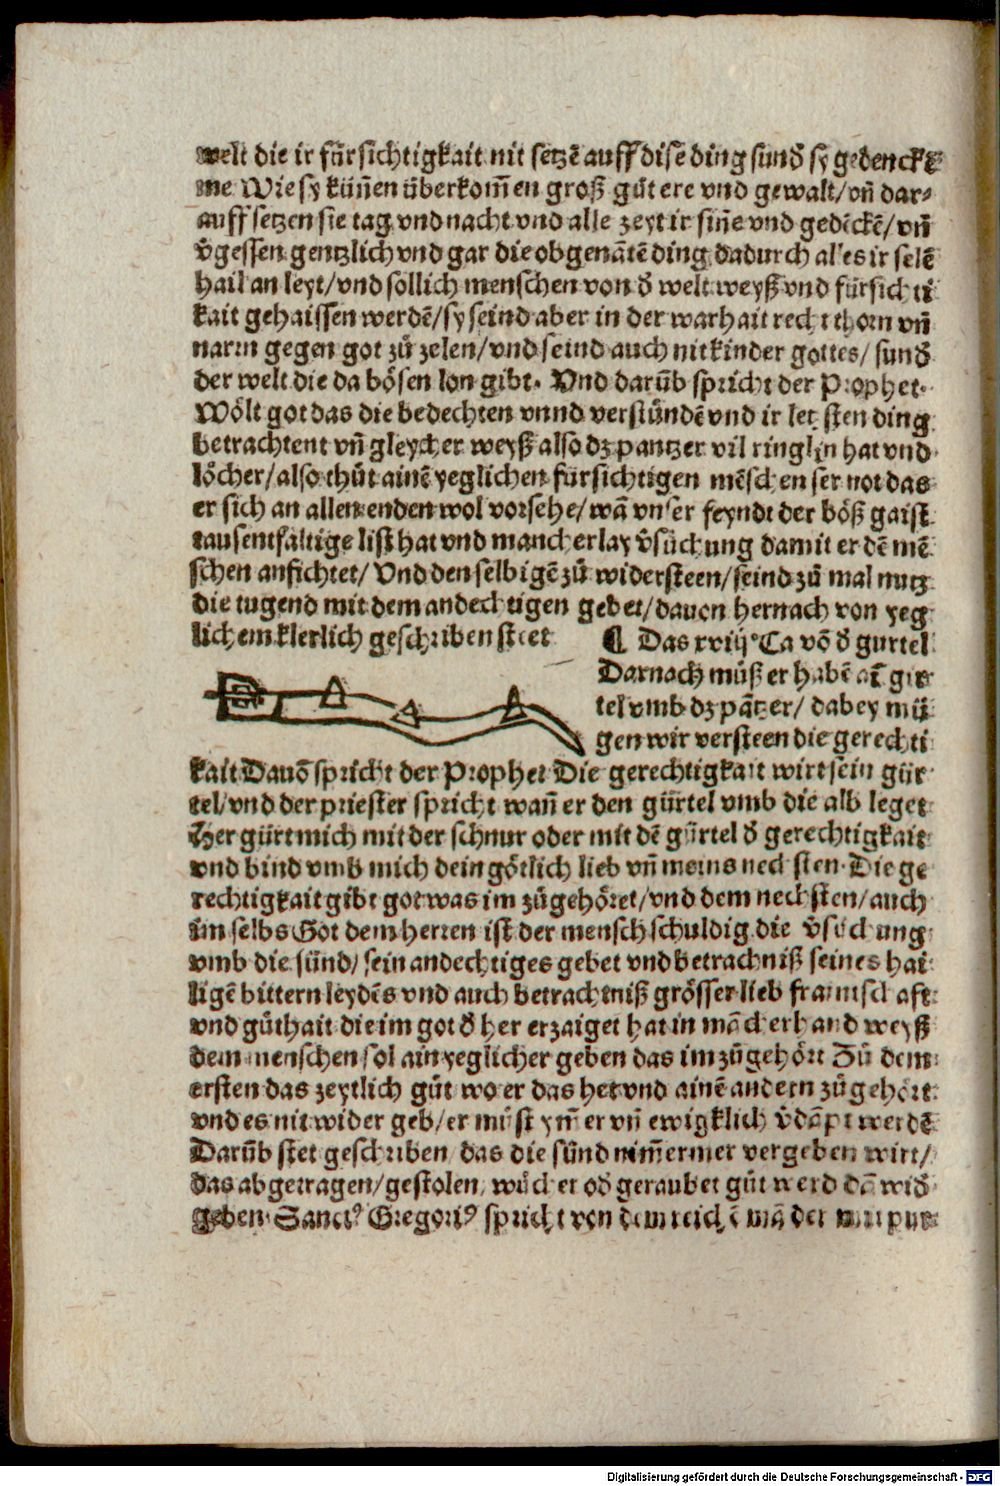 welt die ir fürsichtigkait nit setzē auff dise ding sund̄ sy gedenckē
me Wie sy künnen überkom̄en groß gůt ere vnd gewalt/ vn̄ dar-
auff setzen sie tag vnd nacht vnd alle zeyt ir sin̄e vnd gedēckē/ vn̄
v̄gessen gentzlich vnd gar die obgenātē ding dadurch alles ir selē
hail an leyt/ vnd söllich menschen von d̄ welt weyß vnd fürsichti
kait gehaissen werdē/ sy seind aber in der warhait recht thorn vn̄
narrn gegen got zů zelen/ vnd seind auch nit kinder gottes/ sund̄
der welt die da bösen lon gibt. Vnd darūb spricht der Prophet.
Wölt got das die bedechten vnnd verstündē vnd ir letsten ding
betrachtent vn̄ gleycher weyß also dz pantzer vil ringlin hat vnd
löcher/ also thůt ainē yeglichen fürsichtigen mēschen ser not das
er sich an allen enden wol vorsehe/ wā vnser feyndt der böß gaist
tausentfältige list hat vnd mancherlay v̄sůchung damit er dē mē
schen anfichtet/ Vnd den selbigē zů widersteen/ seind zů mal nutz
die tugend mit dem andechtigen gebet/ dauon hernach von yeg
lichem klerlich geschriben steet
¶ Das xxiij Ca vō d̄ gurtel
Darnach můß er habē ain̄ gür
tel vmb dz pātzer/ dabey mü
gen wir versteen die gerechti
kait Dauō spricht der Prophet Die gerechtigkait wirt sein gür
tel/ vnd der priester spricht wan̄ er den gürtel vmb die alb leget
Her gürt mich mit der schnur oder mit dē gürtel d̄ gerechtigkait
vnd bind vmb mich dein götlich lieb vn̄ meins nechsten. Die ge
rechtigkait gibt got was im zůgehöret/ vnd dem nechsten/ auch
im selbs Got dem herren ist der mensch schuldig die v̄sůchung
vmb die sünd/ sein andechtiges gebet vnd betrachniß seines hai
ligē bittern leydēs vnd auch betrachtniß grösser lieb frainnschaft
vnd gůthait die im got d̄ her erzaiget hat in mācherhand weyß
dem menschen sol ain yeglicher geben das im zůgehört Zů dem
ersten das zeytlich gůt wo er das het vnd ainē andern zůgehört
vnd es nit wider geb/ er můst ym̄er vn̄ ewigklich v̄dāpt werdē
Darūb stet geschriben das die sünd nim̄ermer vergeben wirt/
das abgetragen/ gestolen, wůcher od̄ geraubet gůt werd dā wid̄
geben. Sanctꝰ Gregoriꝰ spricht von dem reichē mā der mit pur

Digitalisierung gefördert durch die Deutsche Forschungsgemeinschaft - DFG